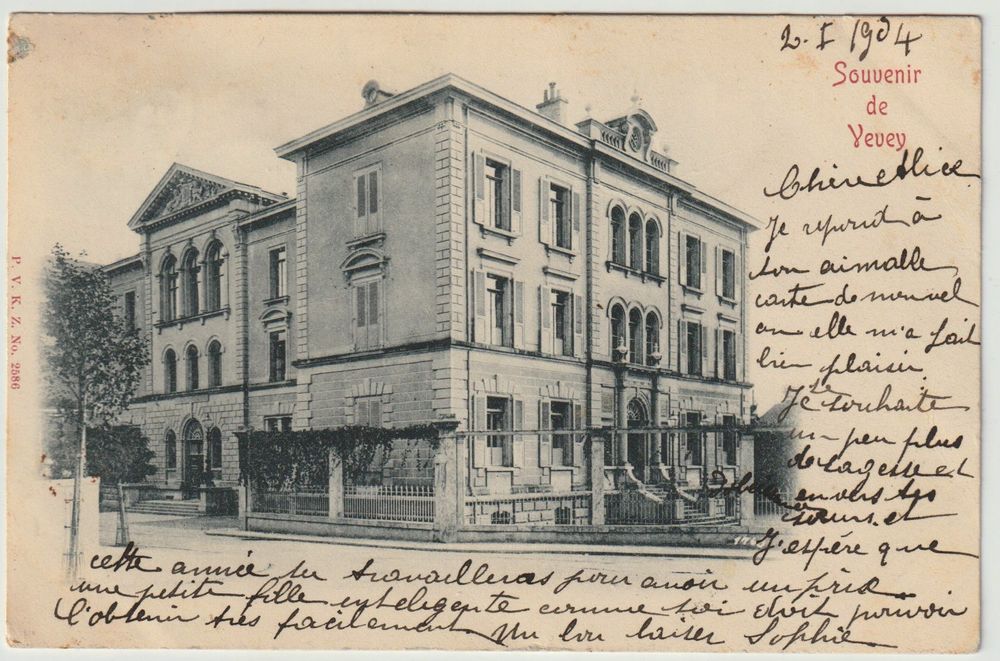 2. I 1904
Souvenir
de
Vevey
Chère Alice
Je repond à
ton aimalle
carte de nouvel
an elle m'a fait
bien plaisir.
Je te souhaite
un peu plus
de sagesse et
en vers tes
sœurs. et
J'espère que
cette année tu travailleras pour avoir un prix
une petite fille inteligente comme toi doit pouvoir
l'obtenir très facilement. Un bon baiser Sophie
P. V. K. Z. No. 2586